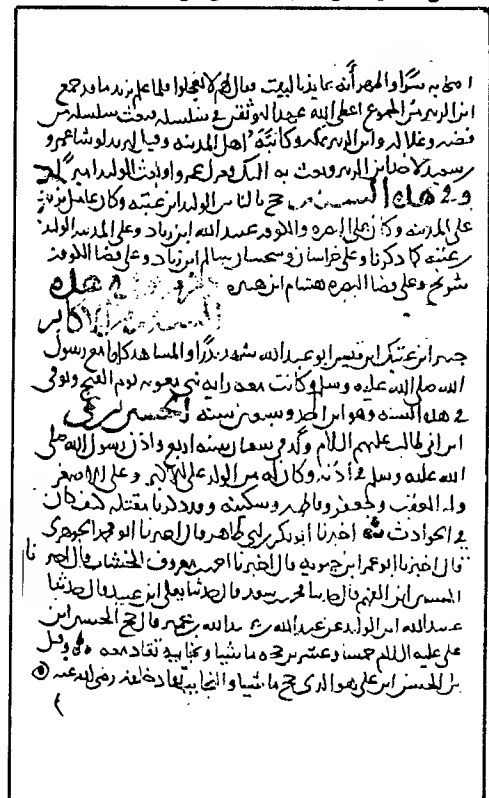 ابن الزبير من الجموع اعطى الله عهدا ليوثقن في سلسلة فبعث سلسلة من
فضة وغلا له وابن الزبير بمكة وكاتبه اهل المدينة وقيل ليزيد لو شا عمرو
بن سعيد لاخذ ابن الزبير وبعث به اليك فعزل عمرو او بعث الوليد اميرا
وفي هذه السنة حج بالناس الوليد ابن عتبة وكان عامل يزيد
على المدينة وكان على البصرة والكوفة عبيد الله ابن زياد وعلى المدينة الوليد
بن عتبة كما ذكرنا وعلى خراسان وسجستان سالم ابن زياد وعلى قضا الكوفة
شريح وعلى قضا البصرة هشام ابن هبيرة هذه
السنة من الاكابر
جبر ابن عتيك ابن قيس ابو عبد الله شهد بدرا والمشاهد كلها مع رسول
الله صلى الله عليه وسلم وكانت معه راية بني معوية يوم الفتح وتوفي
في هذه السنة وهو ابن احد وسبعين سنة الحسين بن علي
ابن ابي طالب عليهم السلام ولد في شعبان سنة اربع واذن رسول الله صلى
الله عليه وسلم في اذنه وكان له من الولد علي الاكبر وعلي الاصغر
وله العقب وجعفر وفاطمة وسكينة وقد ذكرنا مقتله كيف كان
في الحوادث اخبرنا ابو بكر بن ابي طاهر قال اخبرنا ابو محمد الجوهري
قال اخبرنا ابو عمر ابن حيويه قال اخبرنا احمد بن معروف الخشاب قال اخبرنا
الحسين ابن الفهم قال حدثنا محمد بن سعد قال حدثنا يعلى ابن عبيد قال حدثنا
عبيد الله ابن الوليد عن عبد الله بن عبيد الله بن عمير قال حج الحسين ابن
علي عليه السلام خمسا وعشرين حجة ماشيا ونجايبه تقاد معه وقيل
بل الحسن ابن علي هو الذي حج ماشيا والنجايب تقاد خلفه رضي الله عنه